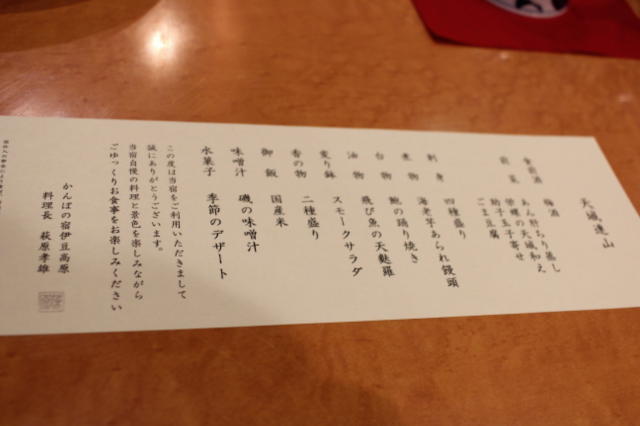 天城連山
食前酒 梅酒
前菜 あん肝ちり蒸し
栄螺の天城和え
助子玉子寄せ
ごま豆腐
刺身 四種盛り
煮物 海老芋あられ饅頭
台物 鮑の踊り焼き
油物 飛び魚の天麩羅
変り鉢 スモークサラダ
香の物 二種盛り
御飯 国産米
味噌汁 磯の味噌汁
水菓子 季節のデザート
この度は当宿をご利用いただきまして
誠にありがとうございます。
当宿自慢の料理と景色を楽しみながら
ごゆっくりお食事をお楽しみください
かんぽの宿伊豆高原
料理長 萩原孝雄